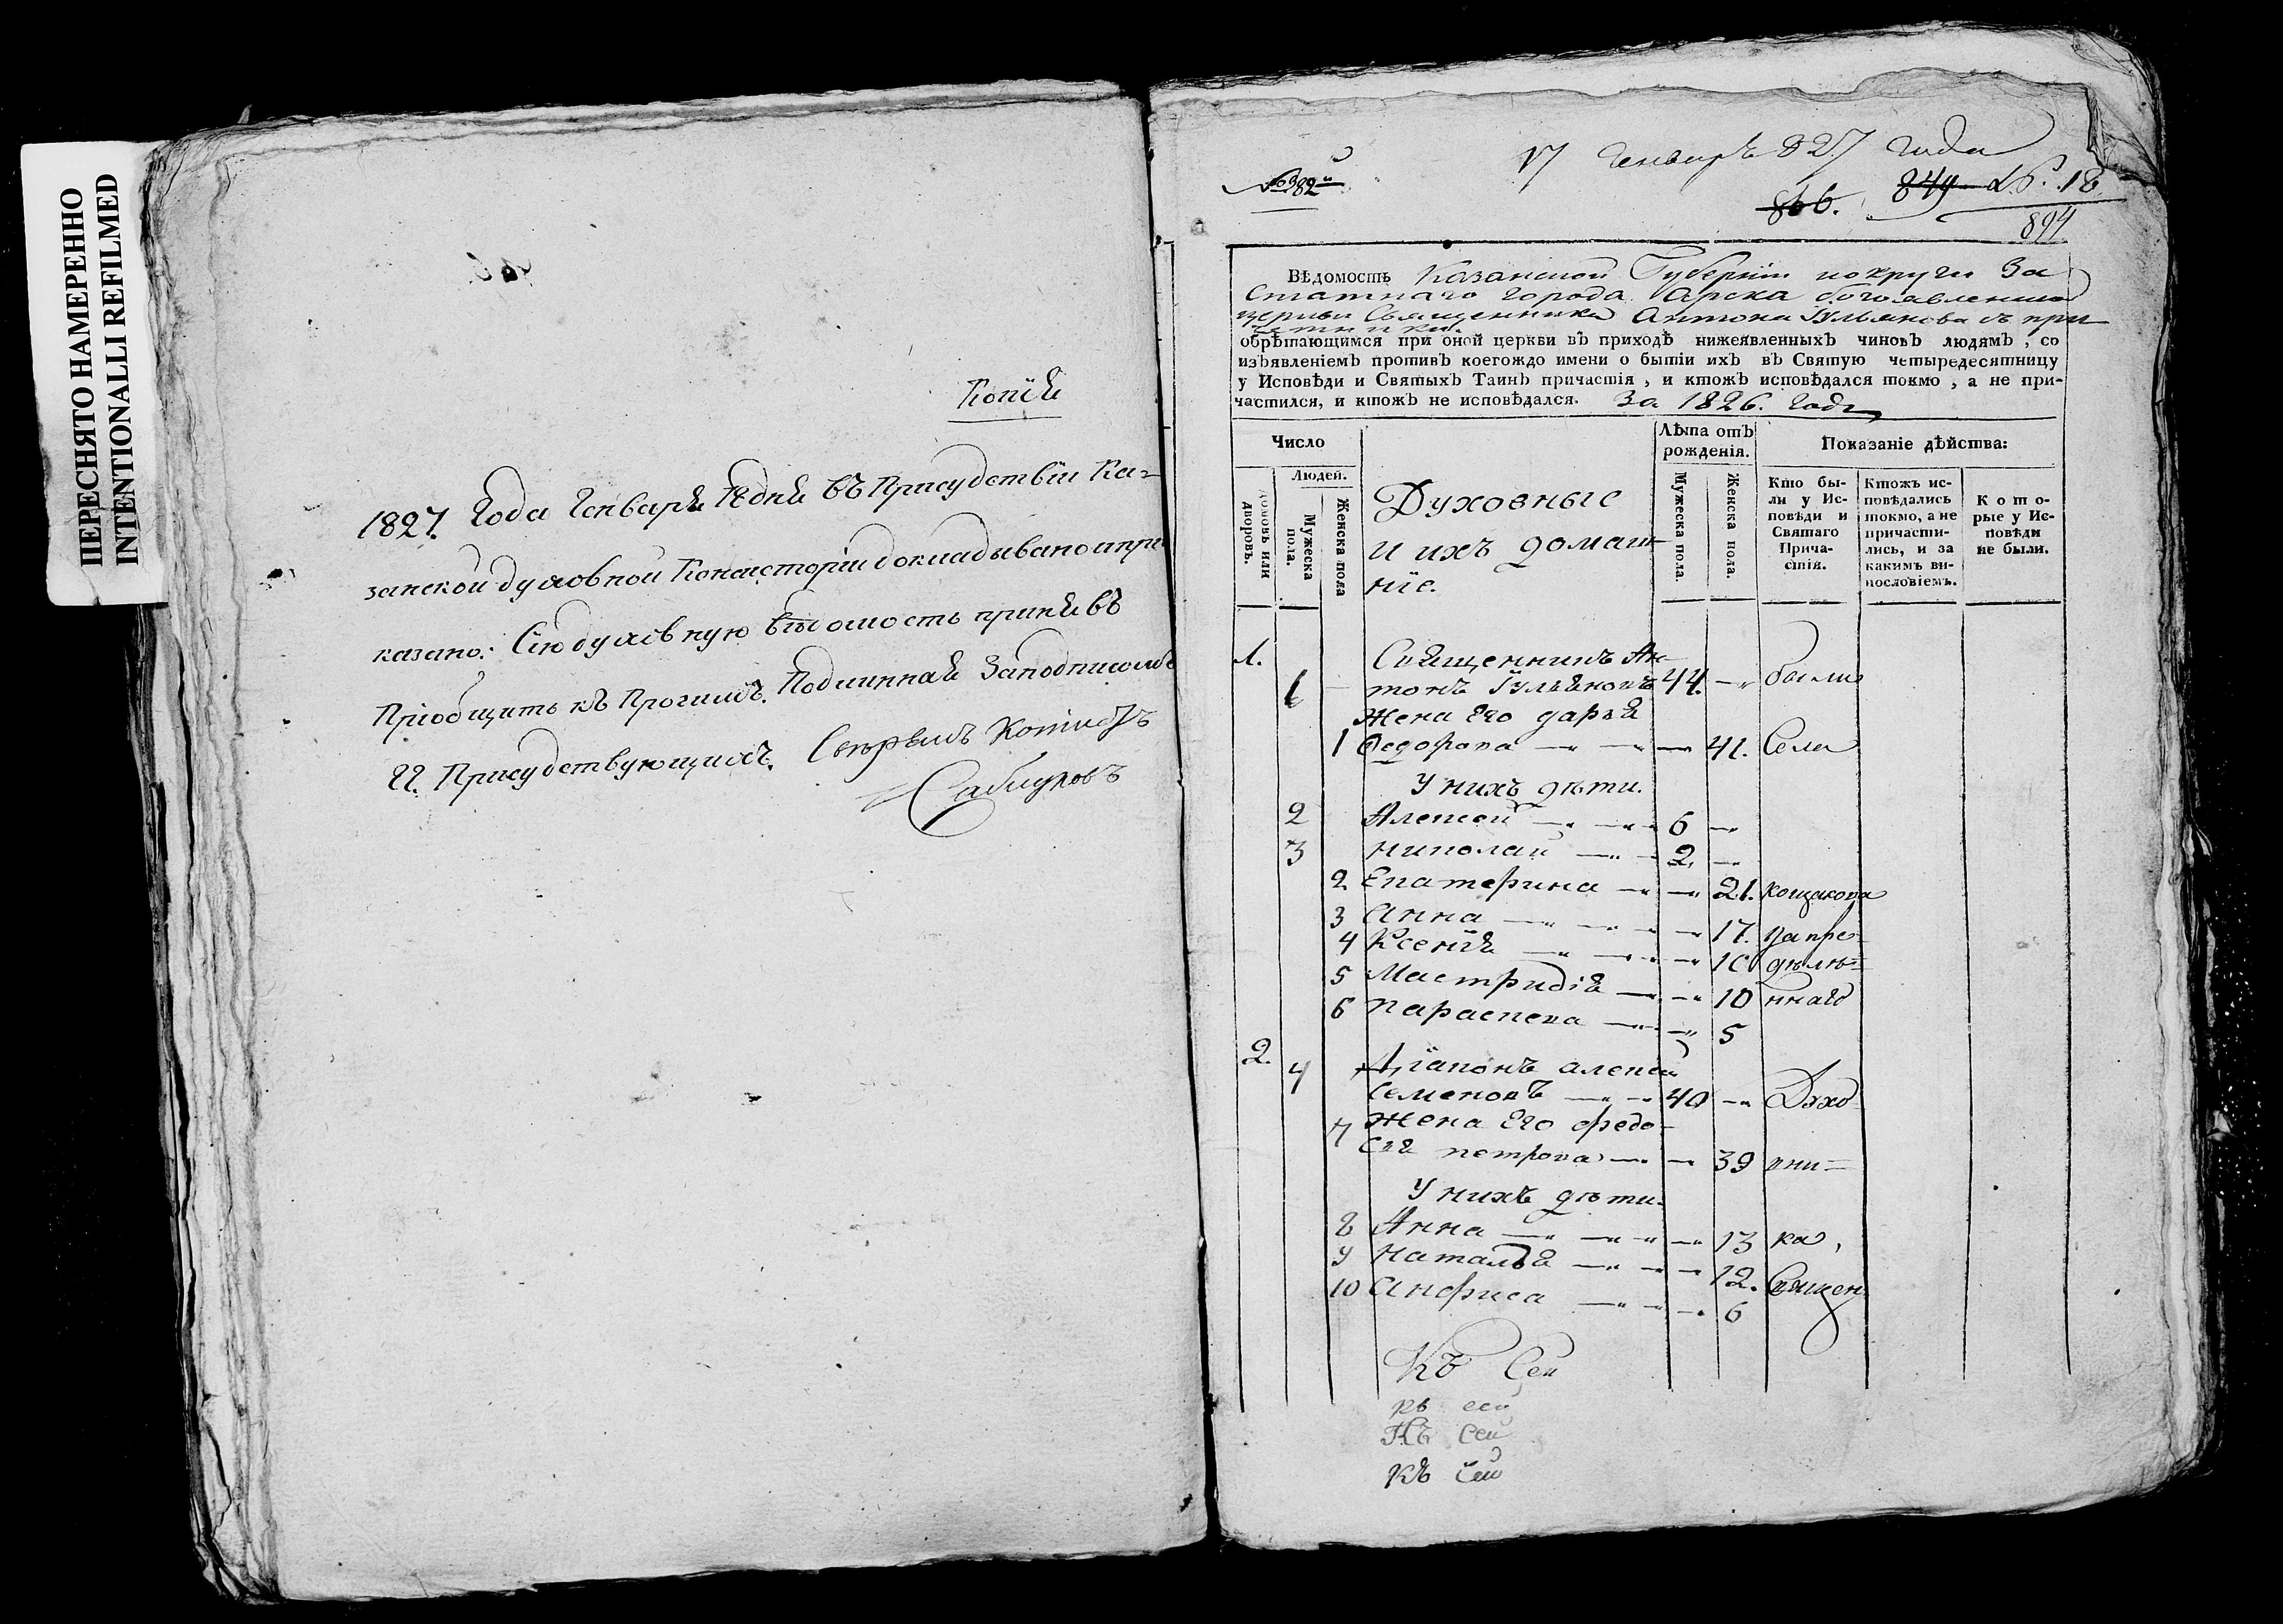 ПЕРЕСНЯТО НАМЕРЕННО
INTENTIONALLI REFILMED
Копія
1827. Года Генваря 18 дня въ Присудствіи Ка-
занской духовной Консисторіи докладывано и при
казано: Сію духовную вѣдомость принявъ
Пріобщить къ Прочимъ. Подлинная За подписомъ
Г.Г. Присудствующихъ.
№ 382й
17 Генваря 827 года
866. 849 18
894
Вѣдомость Казанской Губерніи и округи За
статнаго города Арска богоявленской
церкви Священника Антона Гульянова съ при
четники.
обрѣтающимся при оной церкви въ приходѣ нижеявленныхъ чиновъ людямъ, со
изъявленіемъ противъ коегождо имени о бытіи ихъ въ Святую четыредесятницу
у Исповѣди и Святыхъ Таинъ причастія, и ктожъ исповѣдался токмо, а не при-
частился, и ктожъ не исповѣдался. За 1826. годъ
Число
Лѣта отъ
рожденія.
Показаніе дѣйства:
домовъ или
дворовъ.
Людей.
Мужеска
пола.
Женска пола
Духовные
и ихъ домаш-
ніе.
Мужеска пола.
Женска пола.
Кто бы-
ли у Ис-
повѣди и
Святаго
Прича-
стія.
Ктожъ ис-
повѣдались
токмо, а не
причасти-
лись, и за
какимъ ви-
нословіемъ.
Кото-
рые у Ис-
повѣди
не были.
1. Священникъ Ан-
1 тонъ Гульяновъ 44. были
Жена Его дарья
1 Федорова 41. Села
У нихъ дѣти.
2 Алексей 6
3 николай 2.
2 Екатерина 21. кощакова
3 Анна 17. запре-
4 Ксенія 10 дѣле=
5 Мастридія 10 ннаго
6 параскева 5
2. 4 Діаконъ алексей
Семеновъ 40 Духо-
7 Жена Его федо-
сія петрова 39 вни=
У нихъ дѣти.
8 Анна 13 ка,
9 Наталья 12. Священ
10 Анфиса 6
Къ Сей
къ сей
Къ Сей
Къ Сей